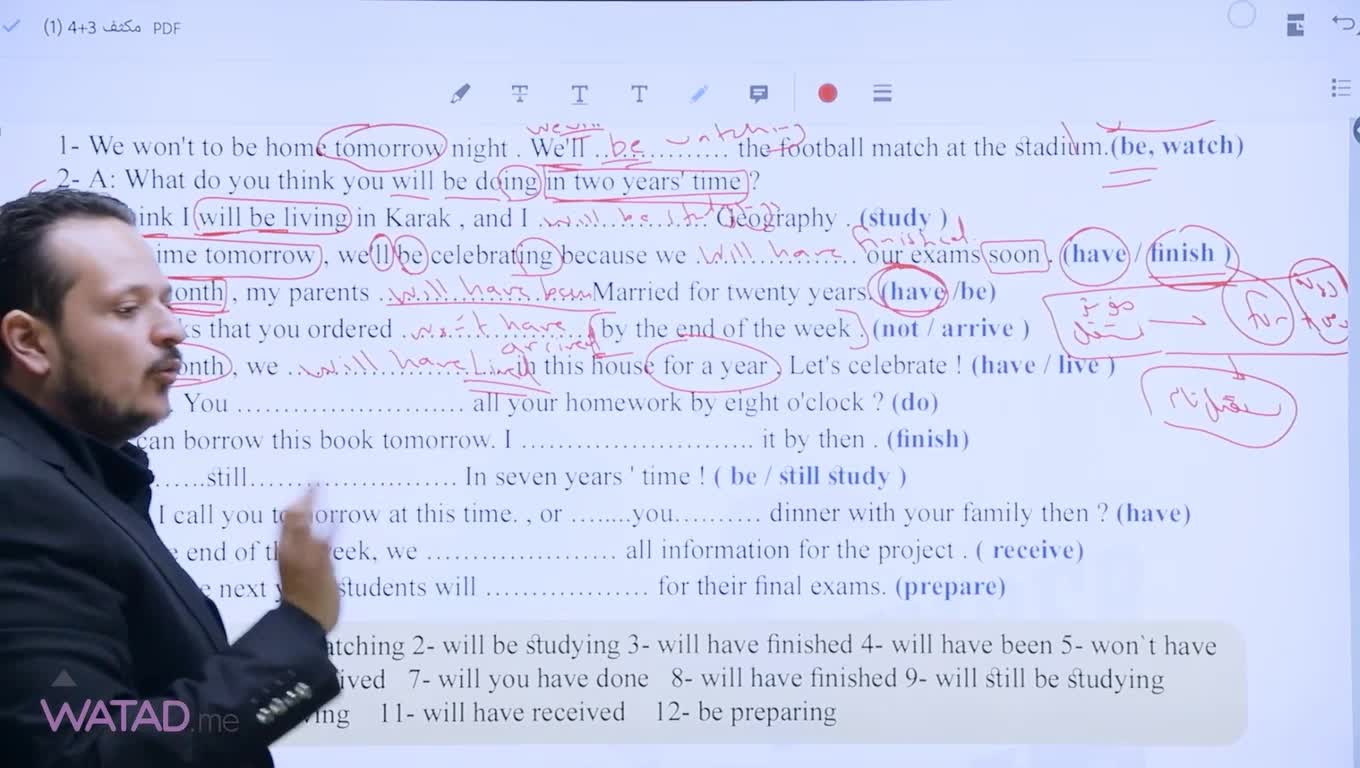 مكثف 3+4 (1) PDF
we will be watching
1- We won't to be home tomorrow night . We'll ..be............ the football match at the stadium.(be, watch)
2- A: What do you think you will be doing in two years' time ?
ink I will be living in Karak , and I ..will be st.......... Geography . (study )
finished
ime tomorrow, we'll be celebrating because we .will have........ our exams soon . (have / finish )
onth , my parents ..will have been Married for twenty years. (have /be)
ks that you ordered ..won't have... by the end of the week . (not / arrive )
arrived
onth, we ..will have Lived in this house for a year . Let's celebrate ! (have / live )
مستقبل تام
. You ........................ all your homework by eight o'clock ? (do)
can borrow this book tomorrow. I ......................... it by then . (finish)
......still...................... In seven years ' time ! ( be / still study )
I call you tomorrow at this time. , or ........you.......... dinner with your family then ? (have)
end of the week, we .................... all information for the project . ( receive)
e next y students will .................. for their final exams. (prepare)
atching 2- will be studying 3- will have finished 4- will have been 5- won`t have
ived 7- will you have done 8- will have finished 9- will still be studying
ing 11- will have received 12- be preparing
WATAD.me